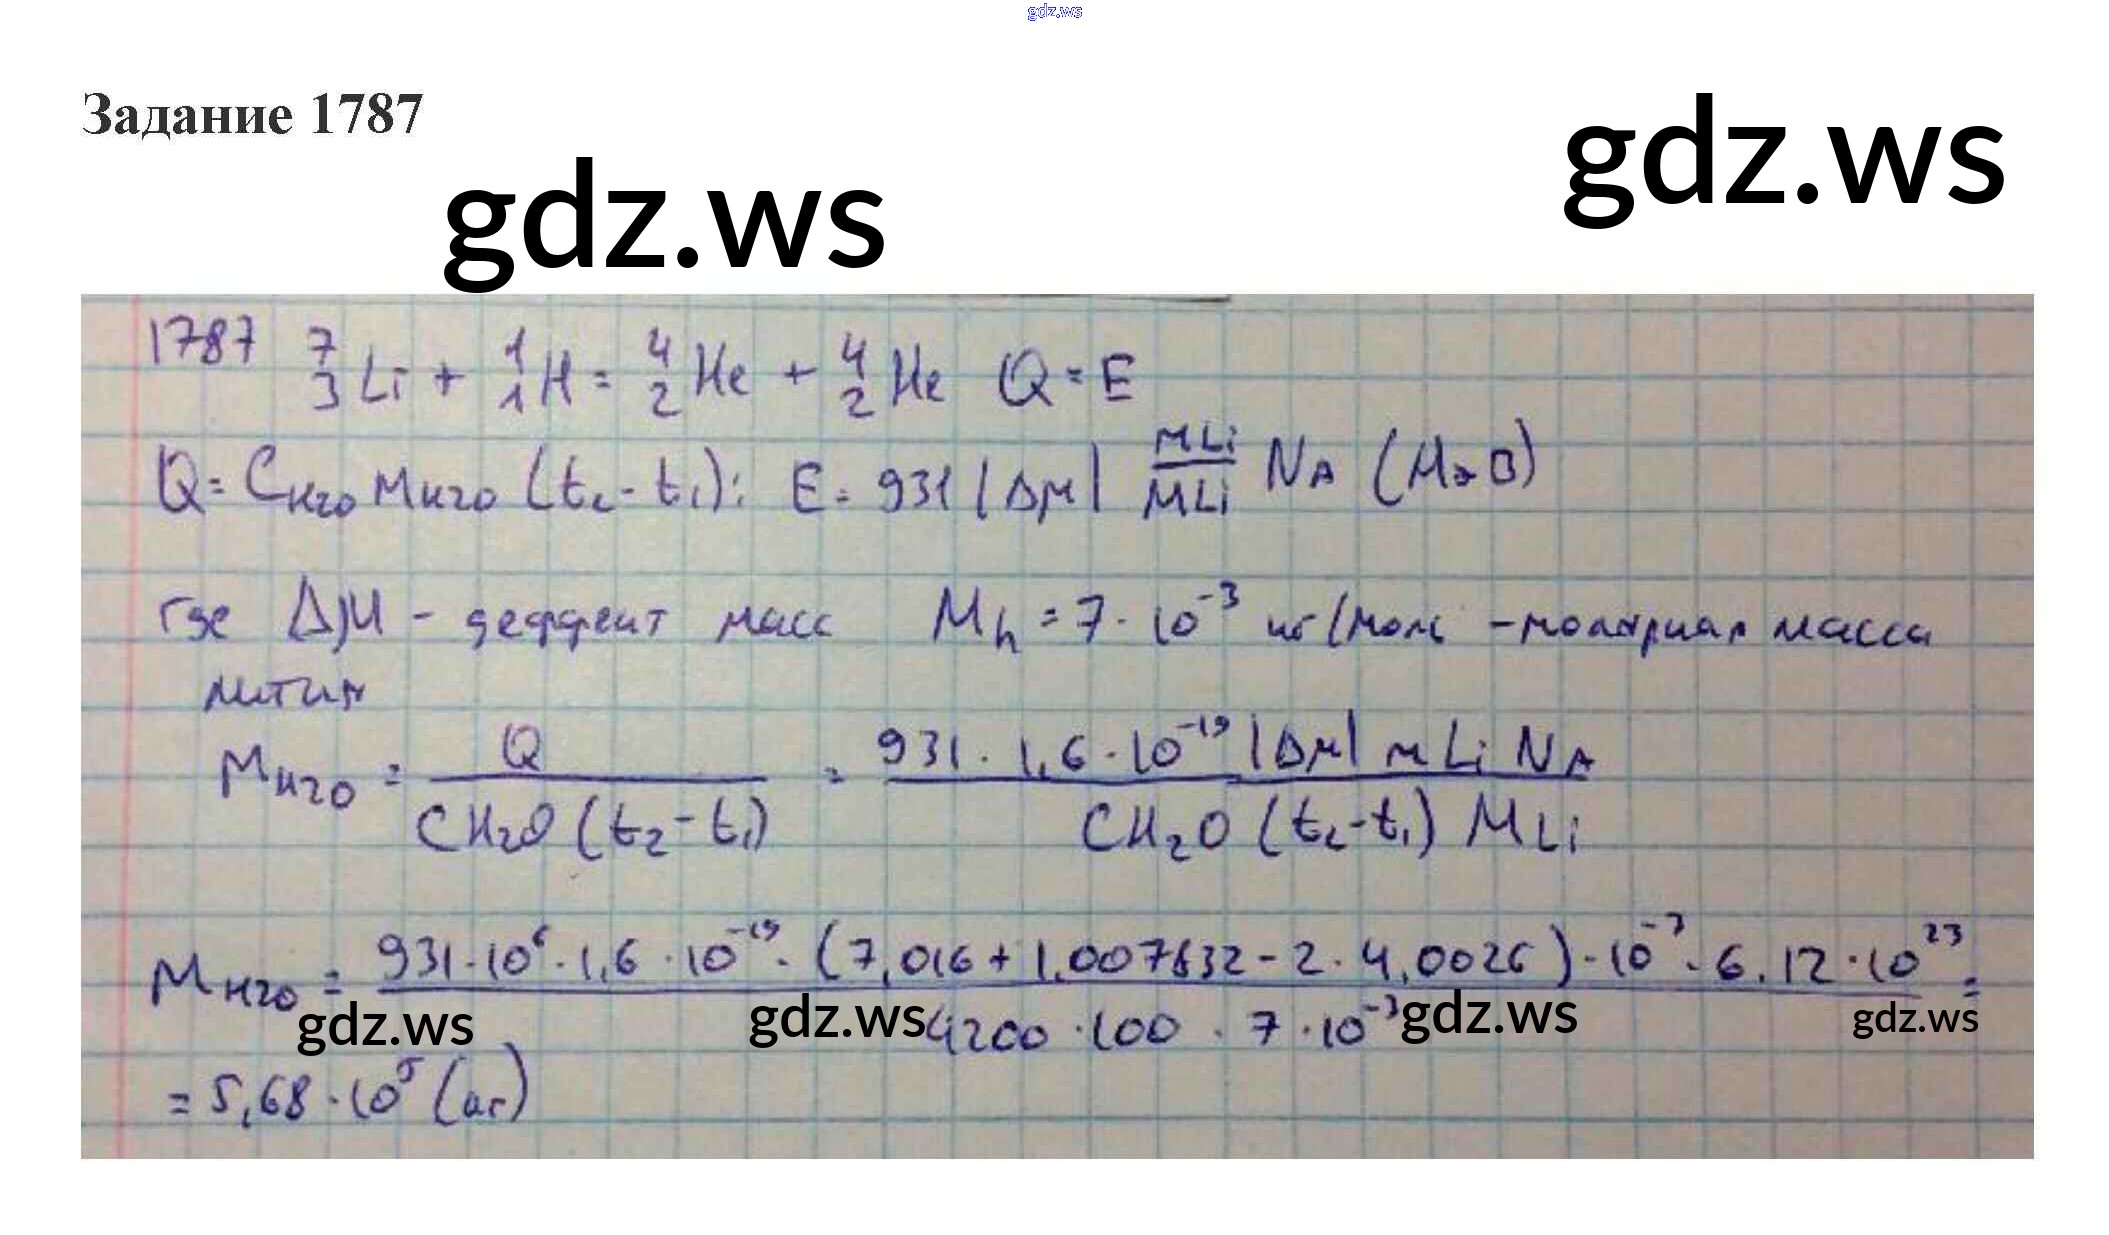 gdz.ws
Задание 1787
gdz.ws
gdz.ws
1787 ⁷₃Li + ¹₁H = ⁴₂He + ⁴₂He Q = E
Q = C H2O м H2O (t₂ - t₁); E = 931 |Δм| мLi/MLi NA (МэВ)
где ΔМ - деффект масс M h = 7 · 10⁻³ кг/моль - молярная масса
лития
м H2O = Q / C H₂O (t₂ - t₁) = 931 · 1,6 · 10⁻¹⁹ |Δм| м Li NA / C H₂O (t₂ - t₁) M Li
м H2O = 931 · 10⁶ · 1,6 · 10⁻¹⁹ · (7,016 + 1,007832 - 2 · 4,0026) · 10⁻³ · 6.12 · 10²³ / 4200 · 100 · 7 · 10⁻³ =
gdz.ws gdz.ws gdz.ws gdz.ws
= 5,68 · 10⁵ (кг)